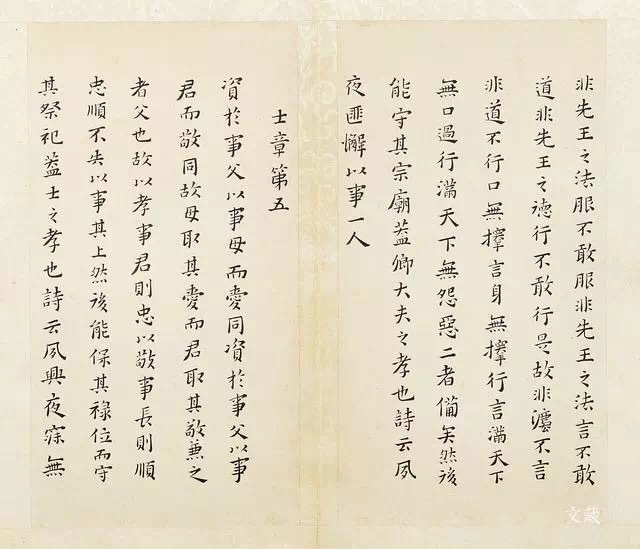 非先王之法服不敢服非先王之法言不敢
道非先王之德行不敢行是故非灋不言
非道不行口無擇言身無擇行言滿天下
無口過行滿天下無怨惡二者備矣然後
能守其宗廟蓋卿大夫之孝也詩云夙
夜匪懈以事一人
士章第五
資於事父以事母而愛同資於事父以事
君而敬同故母取其愛而君取其敬兼之
者父也故以孝事君則忠以敬事長則順
忠順不失以事其上然後能保其祿位而守
其祭祀蓋士之孝也詩云夙興夜寐無
文藏